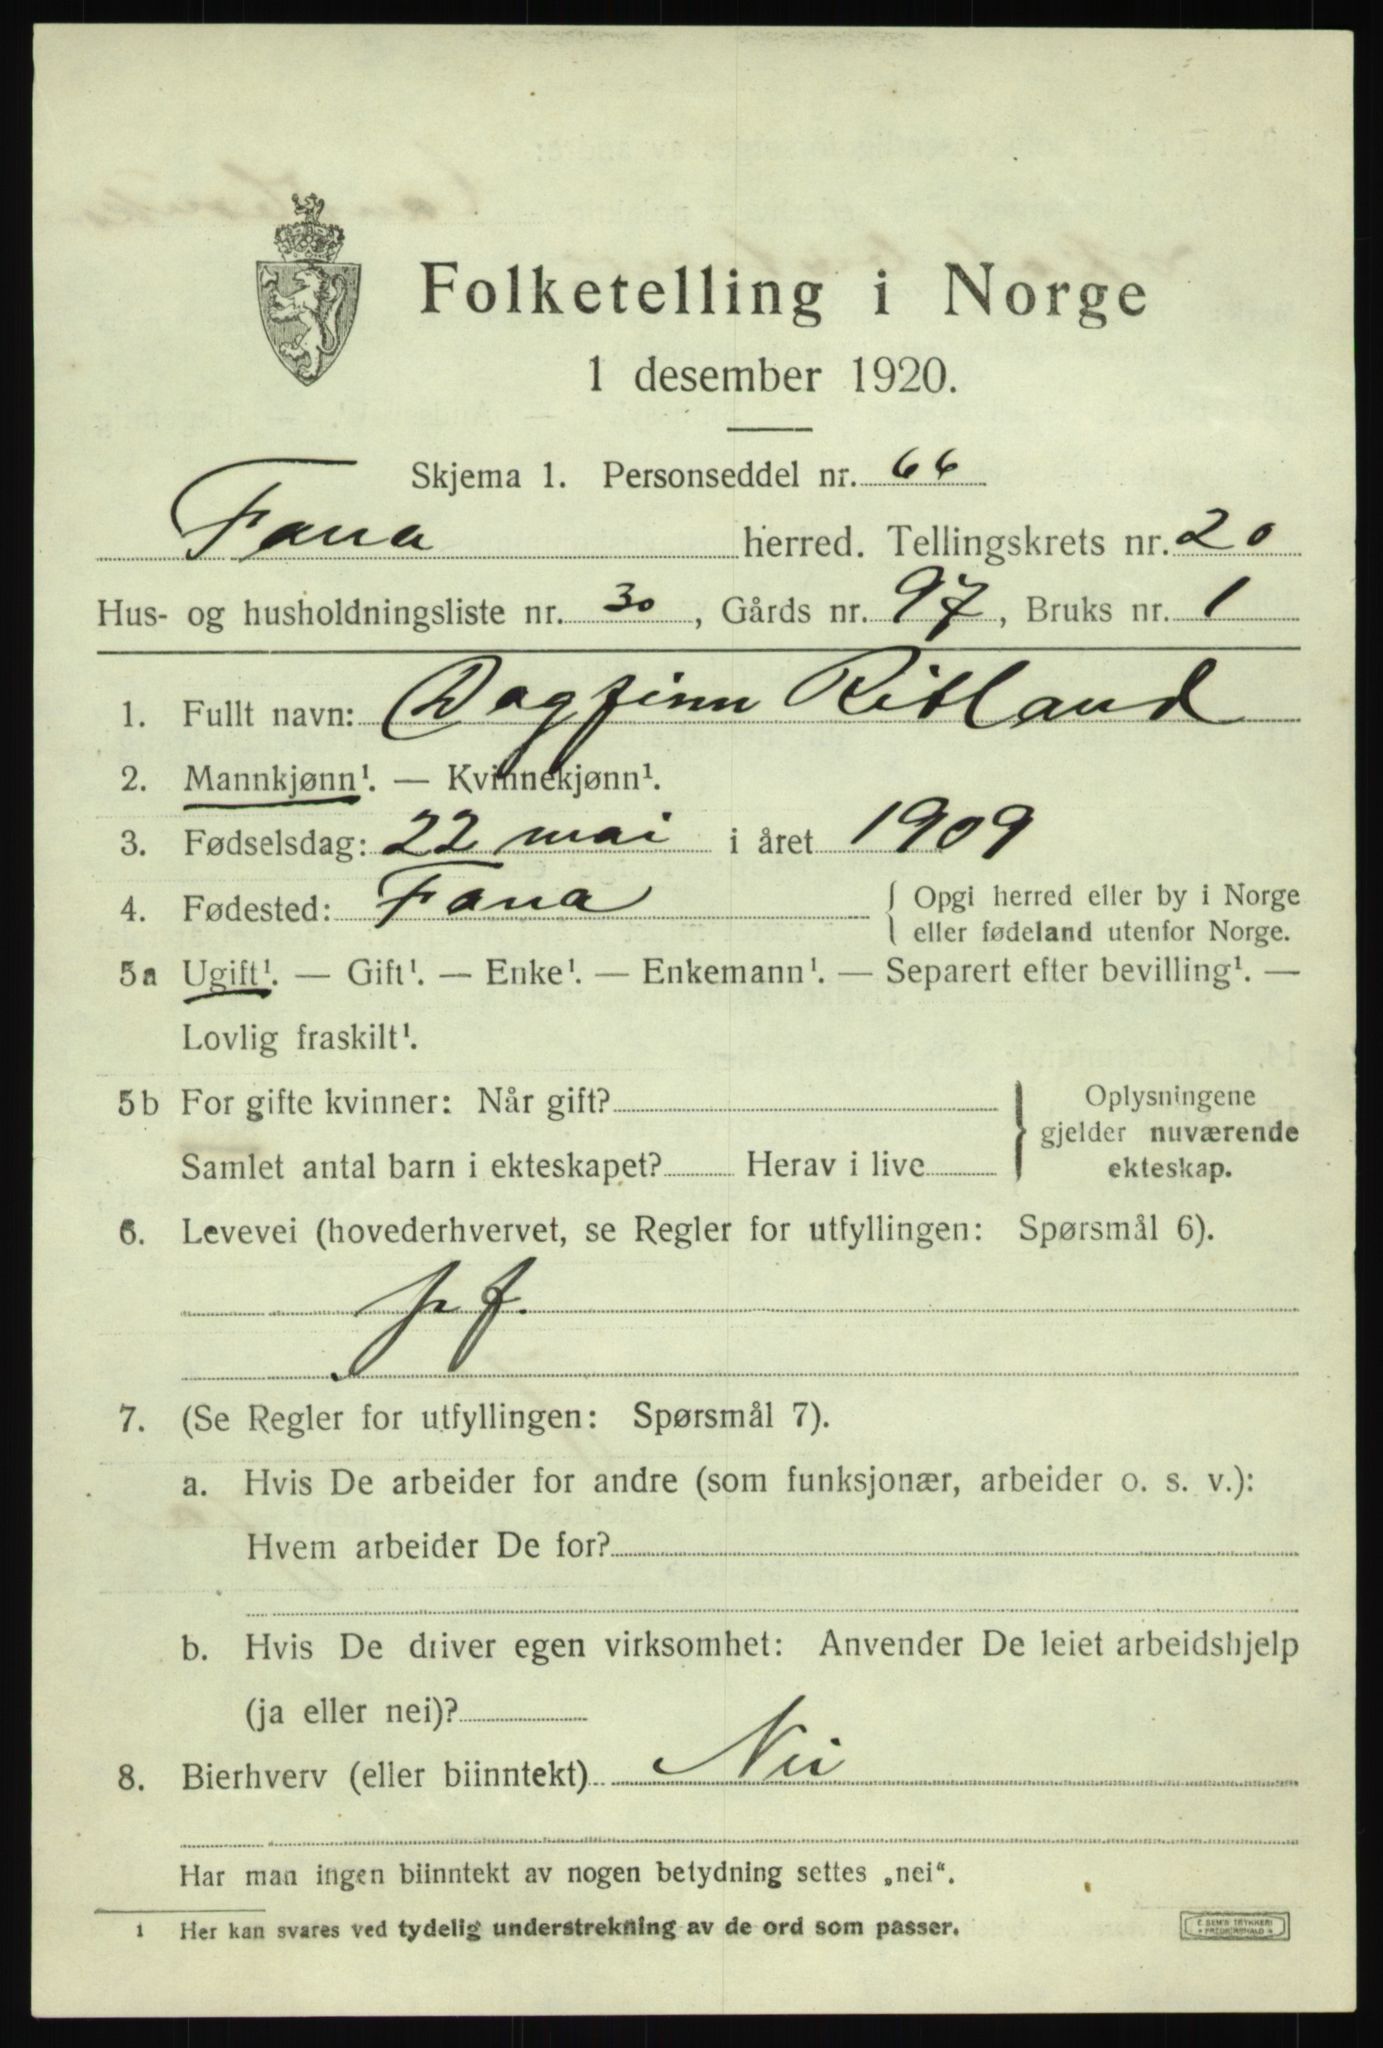 Folketelling i Norge
1 desember 1920.
Skjema 1. Personseddel nr. 66
Fana herred. Tellingskrets nr. 20
Hus- og husholdningsliste nr. 30, Gårds nr. 97, Bruks nr. 1
1. Fullt navn: Dagfinn Ritland
2. Mannkjønn¹. — Kvinnekjønn¹.
3. Fødselsdag: 22 mai i året 1909
4. Fødested: Fana { Opgi herred eller by i Norge
eller fødeland utenfor Norge.
5a Ugift¹. — Gift¹. — Enke¹. — Enkemann¹. — Separert efter bevilling¹. —
Lovlig fraskilt¹.
5b For gifte kvinner: Når gift?
Samlet antal barn i ekteskapet? Herav i live
} Oplysningene
gjelder nuværende
ekteskap.
6. Levevei (hovederhvervet, se Regler for utfyllingen: Spørsmål 6).
7. (Se Regler for utfyllingen: Spørsmål 7).
a. Hvis De arbeider for andre (som funksjonær, arbeider o. s. v.):
Hvem arbeider De for?
b. Hvis De driver egen virksomhet: Anvender De leiet arbeidshjelp
(ja eller nei)?
8. Bierhverv (eller biinntekt) Nei
Har man ingen biinntekt av nogen betydning settes „nei“.
¹ Her kan svares ved tydelig understrekning av de ord som passer.
E. SEM'S TRYKKERI
FREDRIKSHALD